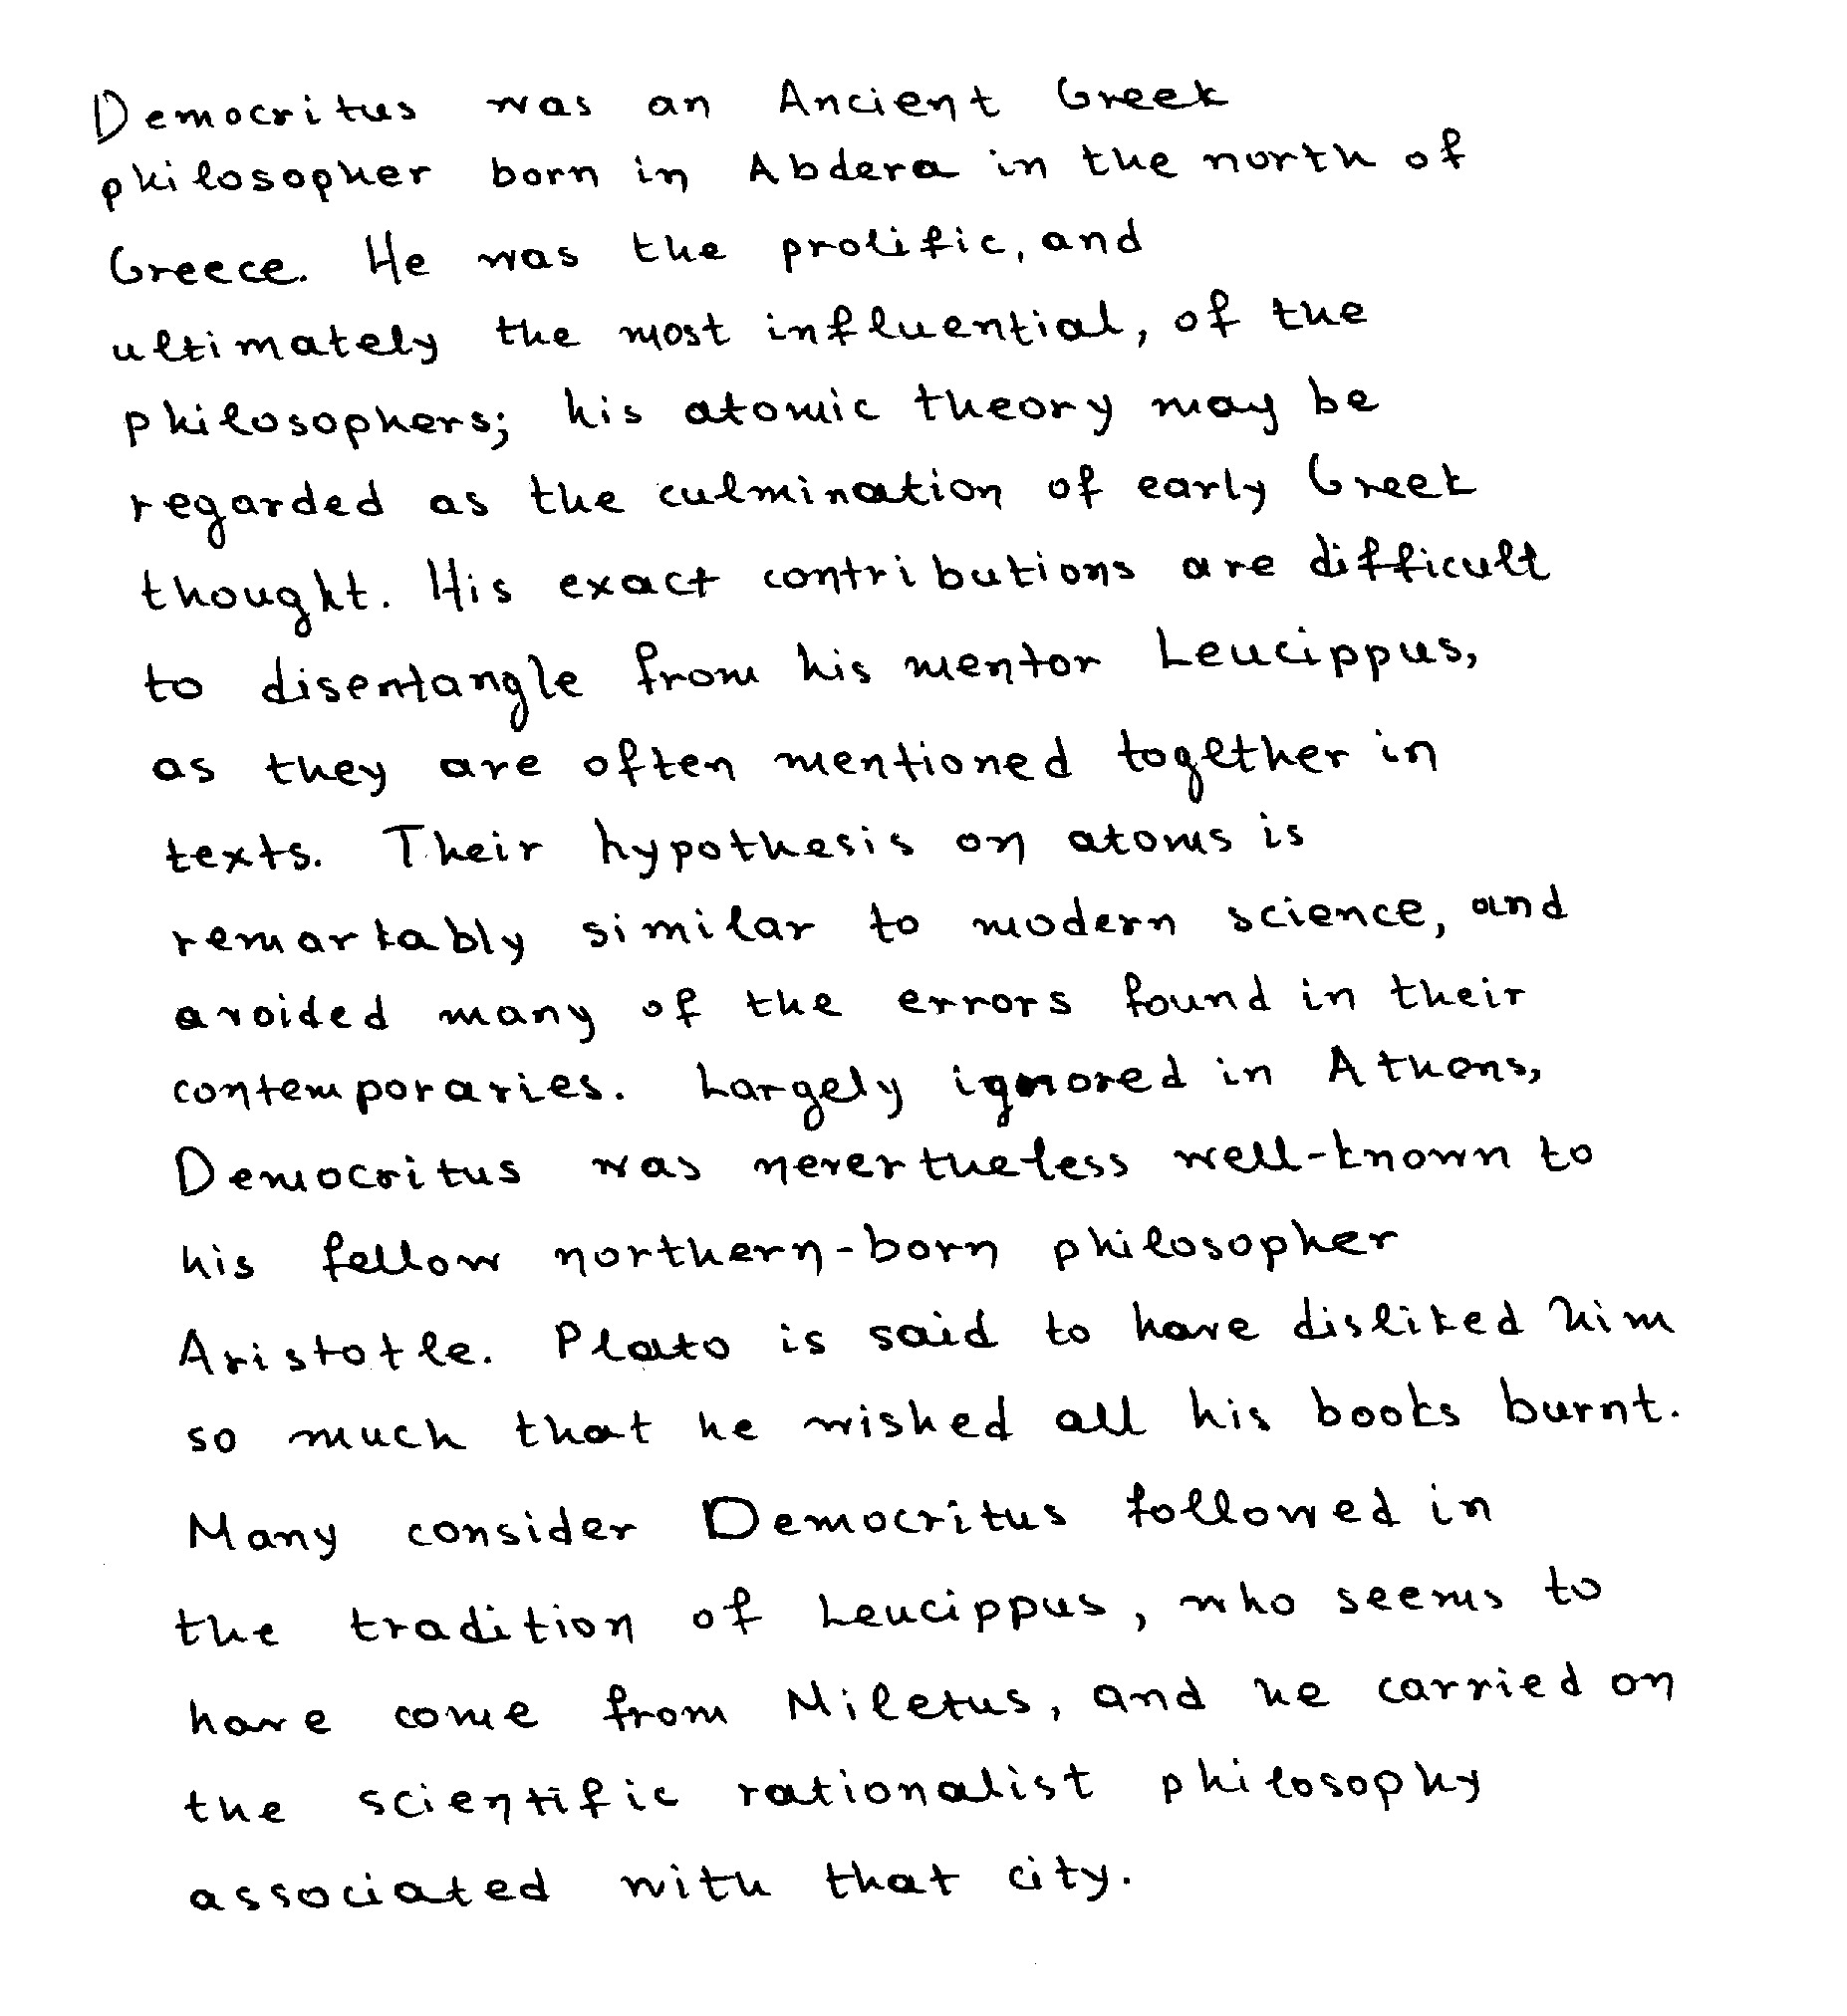 Democritus was an Ancient Greek
philosopher born in Abdera in the north of
Greece. He was the prolific, and
ultimately the most influential, of the
philosophers; his atomic theory may be
regarded as the culmination of early Greek
thought. His exact contributions are difficult
to disentangle from his mentor Leucippus,
as they are often mentioned together in
texts. Their hypothesis on atoms is
remarkably similar to modern science, and
avoided many of the errors found in their
contemporaries. Largely ignored in Athens,
Democritus was nevertheless well-known to
his fellow northern-born philosopher
Aristotle. Plato is said to have disliked him
so much that he wished all his books burnt.
Many consider Democritus followed in
the tradition of Leucippus, who seems to
have come from Miletus, and he carried on
the scientific rationalist philosophy
associated with that city.